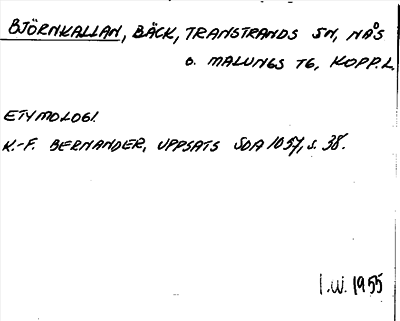 BJÖRNKALLAN, BÄCK, TRANSTRANDS SN, NÅS
O. MALUNGS TG, KOPP. L.
ETYMOLOGI.
K.-F. BERNANDER, UPPSATS SOA 1057, S. 38.
I.W. 1955